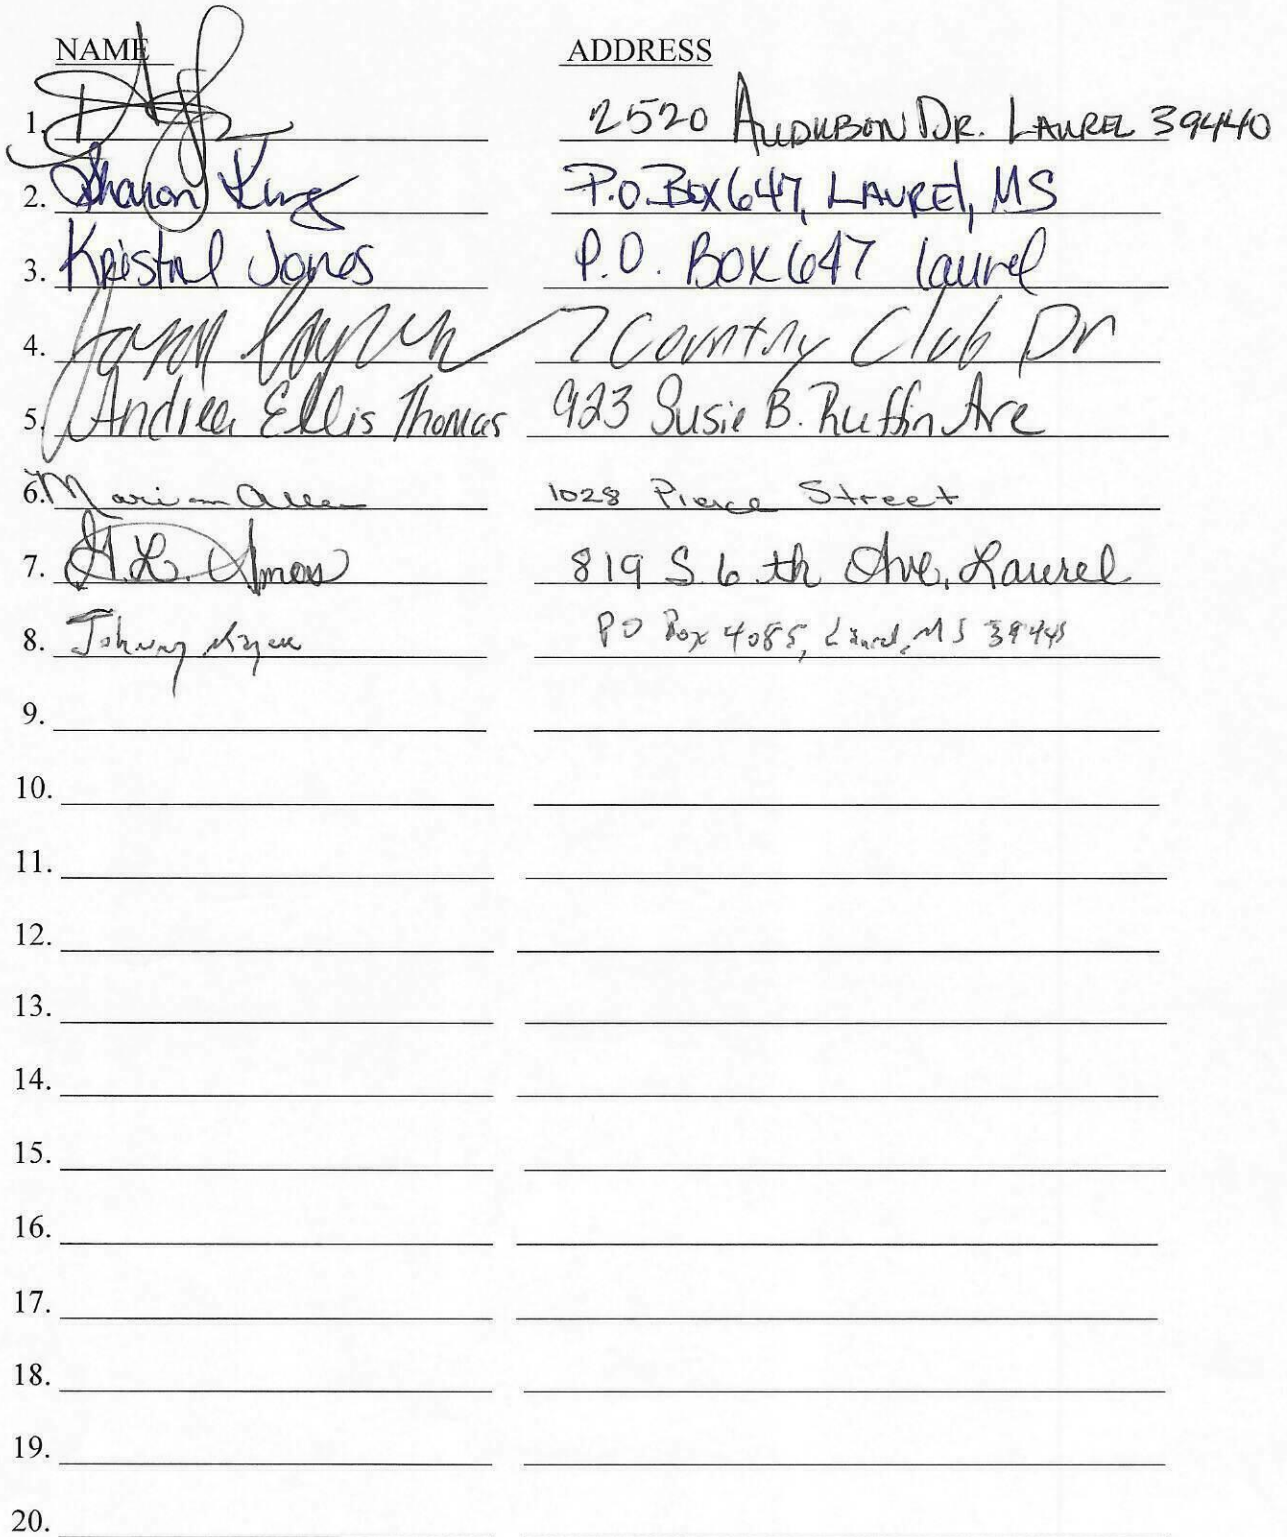 NAME ADDRESS
1. 2520 AUDUBON DR. LAUREL 39440
2. Sharon King P.O. Box 647, LAUREL, MS
3. Kristal Jones P.O. BOX 647 Laurel
4. 7 Country Club Dr
5. Andrea Ellis Thomas 923 Susie B. Ruffin Ave
6. Marian Allen 1028 Pierce Street
7. Amos 819 S. 6th Ave, Laurel
8. Johnny Magee PO Box 4085, Laurel, MS 39441
9.
10.
11.
12.
13.
14.
15.
16.
17.
18.
19.
20.